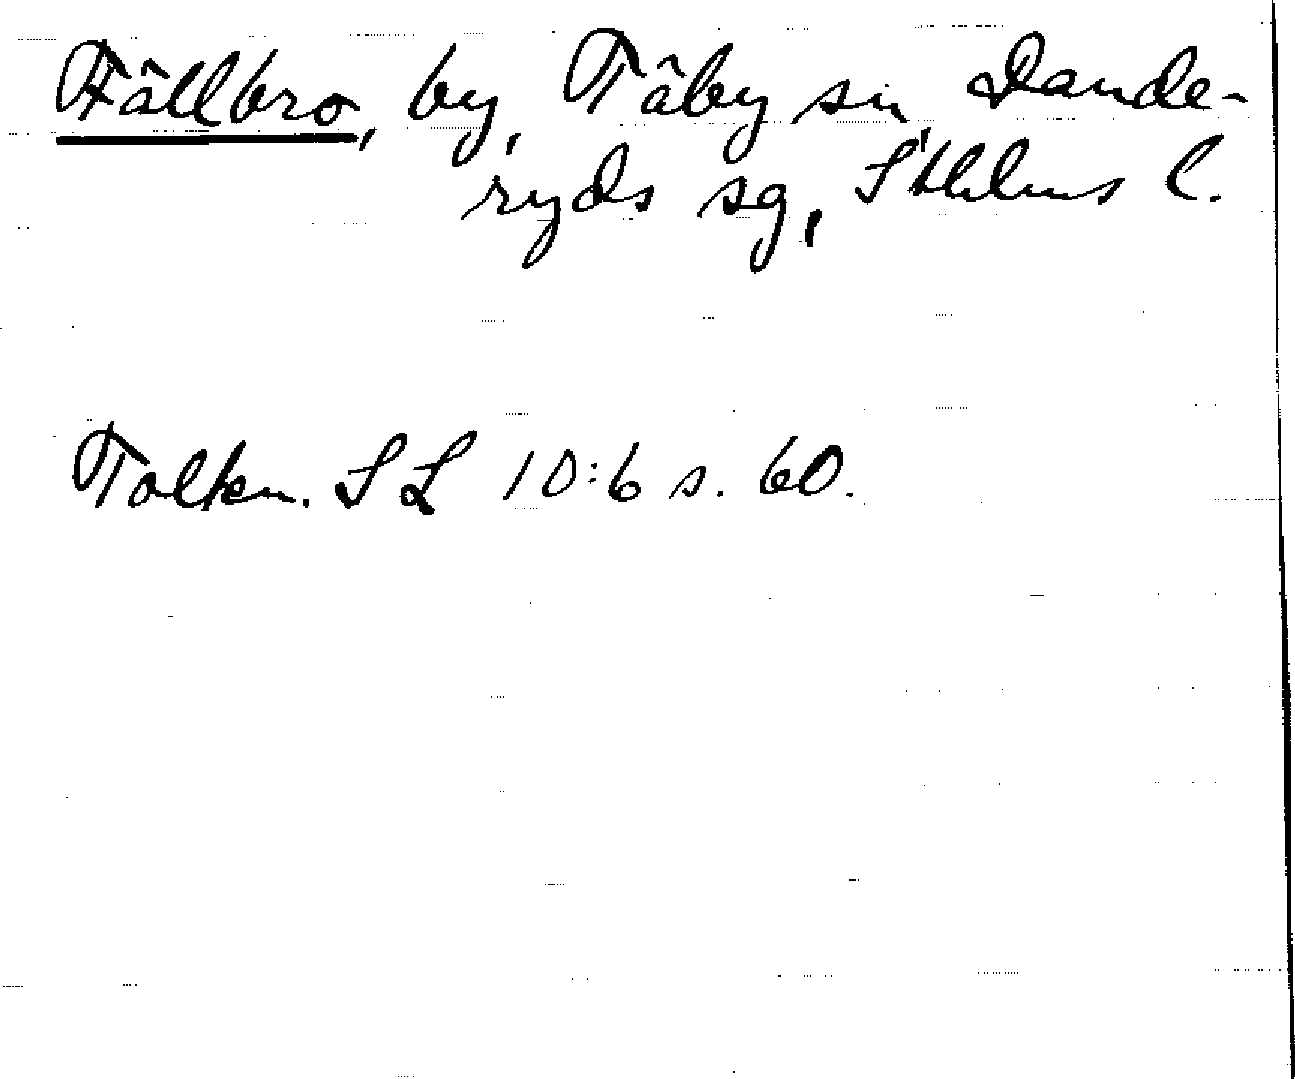 Fällbro, by, Täby sn, Dande-
ryds sg, Sthlms l.
Tolkn. SL 10:6 s. 60.